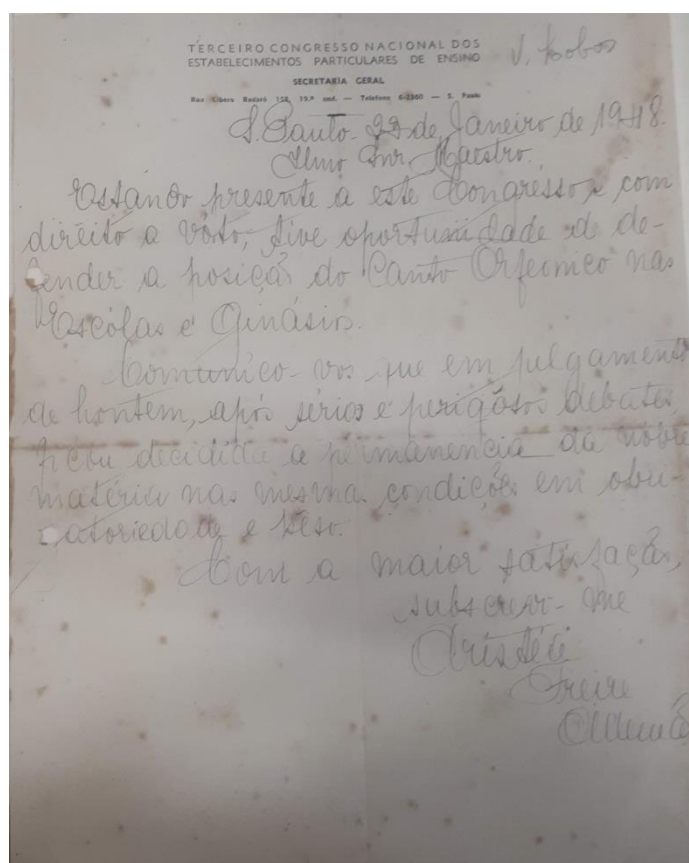 TERCEIRO CONGRESSO NACIONAL DOS
ESTABELECIMENTOS PARTICULARES DE ENSINO
V. Lobos
SECRETARIA GERAL
Rua Líbero Badaró 158, 19.º and. — Telefone — S. Paulo
S. Paulo 22 de Janeiro de 1948.
Ilmo Snr. Maestro.
Estando presente a este Congresso e com
direito a vóto, tive oportunidade de de-
fender a posição do Canto Orfeonico nas
Escólas e Ginásios.
Comunico-vos que em julgamento
de hontem, após sérios e perigósos debates,
ficou decidida a permanencia da nobre
matéria nas mesmas condições em obri-
gatoriedade e peso.
Com a maior satisfação,
subscrevo-me
Freire